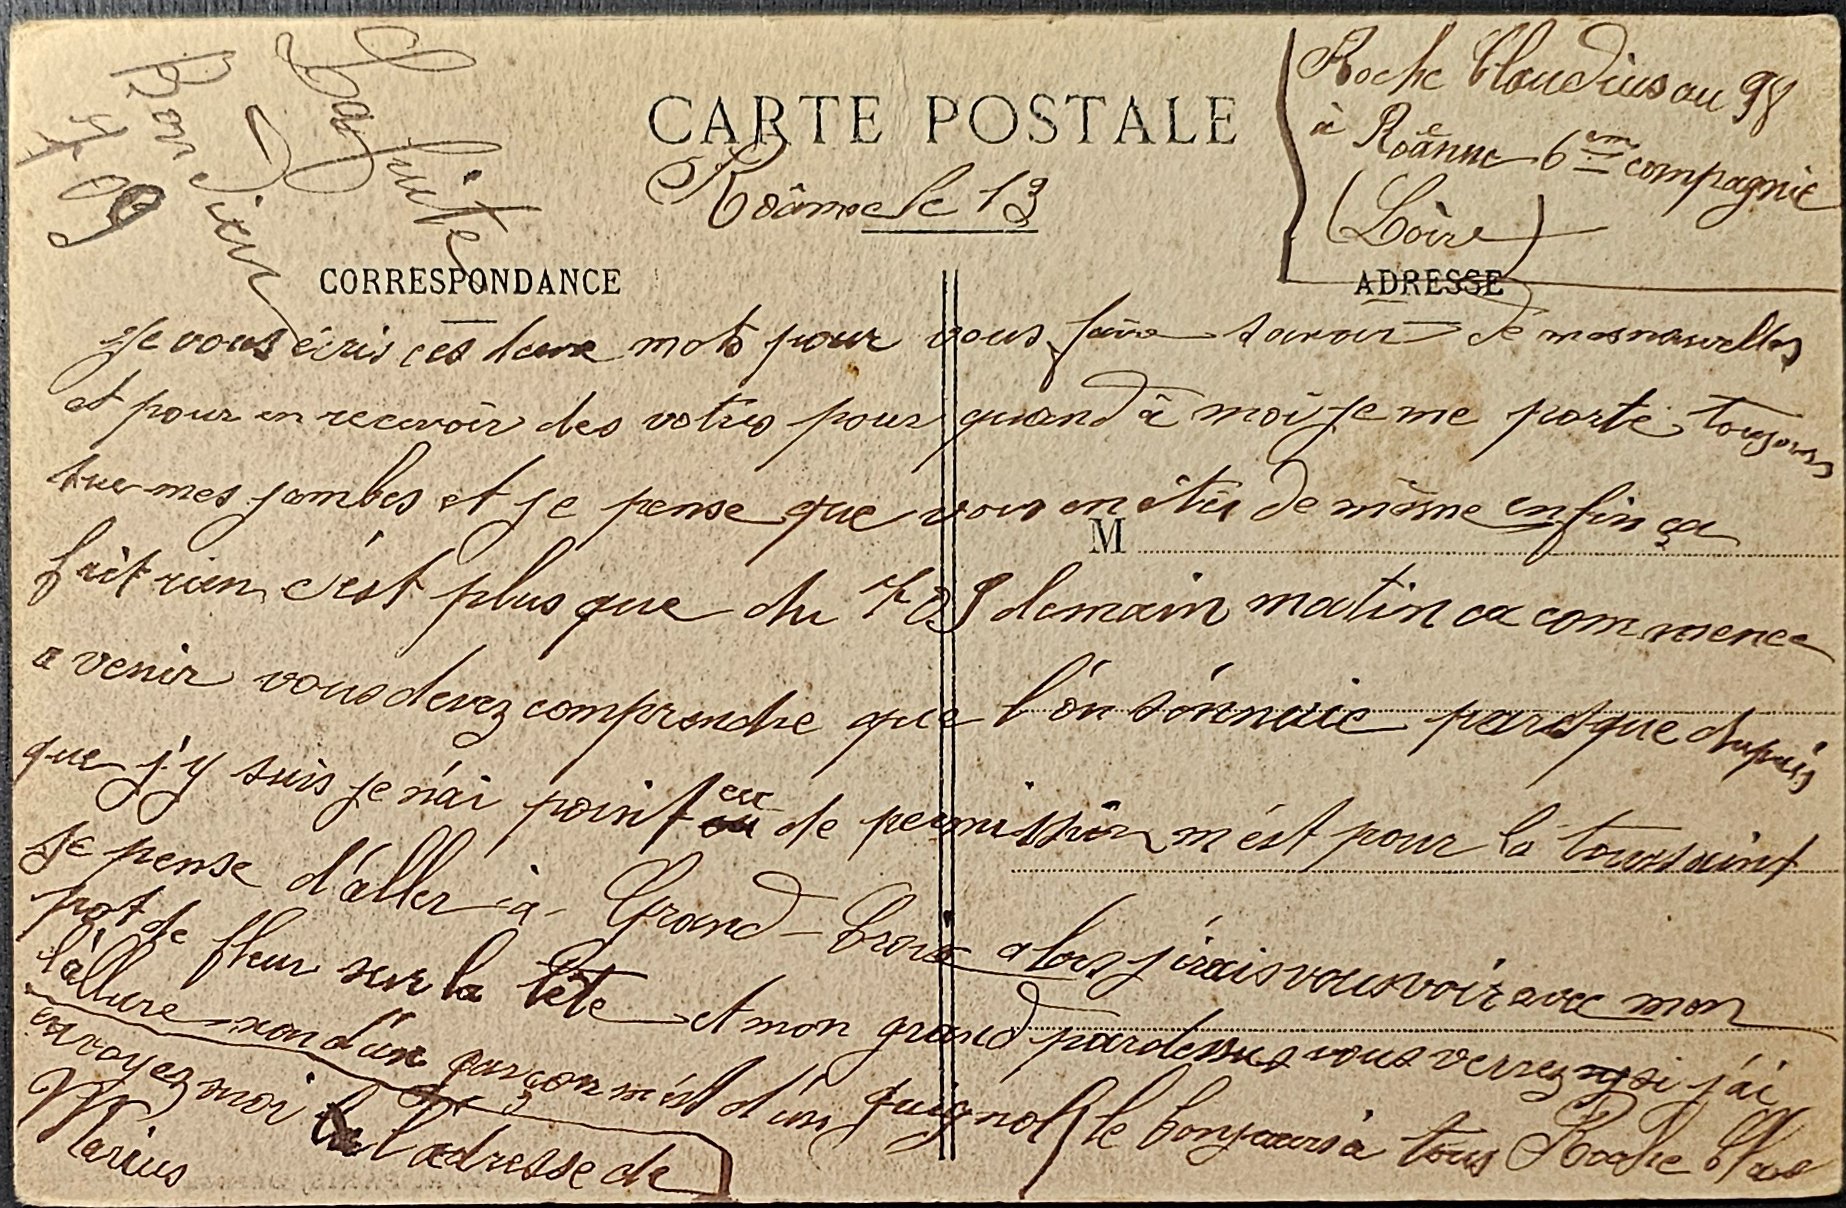 La fuite
Bon Dieu
709
CARTE POSTALE
Roche Claudius au 98
à Rôanne 6ème compagnie
(Loire)
Rôanne le 13
CORRESPONDANCE
ADRESSE
Je vous écris ces deux mots pour vous faire savoir de mes nouvelles
et pour en recevoir des votres pour quand à moi je me porte toujours
sur mes jambes et je pense que vous en êtes de même enfin ça
M
fait rien c'est plus que du 709 demain matin ca commence
a venir vous devez comprendre que l'on s'ennuie parisque depuis
que j'y suis je n'ai point eu de permission m'est pour la toussaint
je pense d'aller à Grand-Croix alors j'irais vous voir avec mon
pot de fleur sur la tête et mon grand pardessus vous verrez si j'ai
l'allure non d'un garçon m'est d'un guignol le bonjours à tous Roche Clau
envoyez moi l'adresse de
Marius